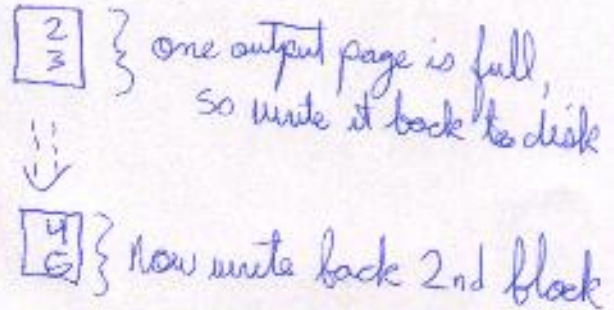 2
3
} one output page is full,
so write it back to disk
4
6
} Now write back 2nd block